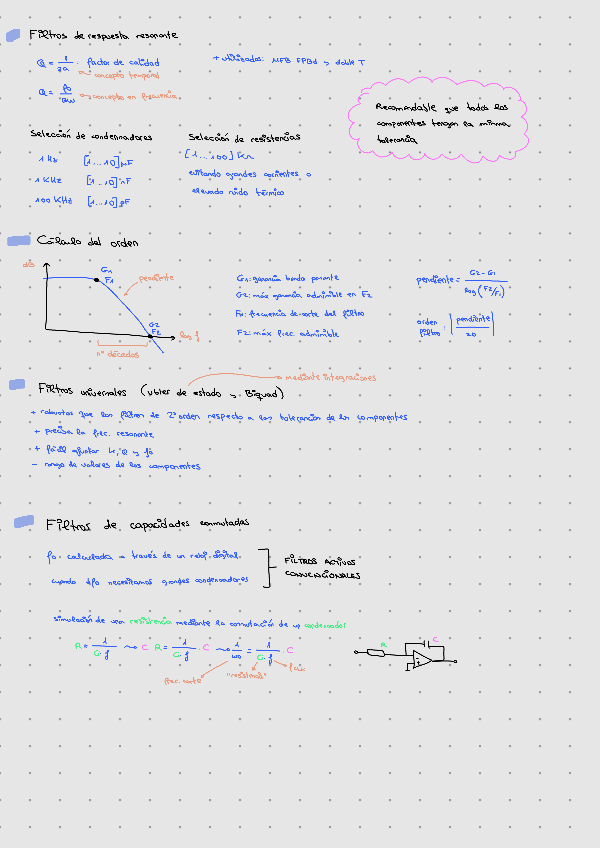 Filtros de respuesta resonante
Q = 1/2a · factor de calidad
concepto temporal
Q = fo/BW concepto en frecuencia.
+ utilizados: MFB FPBd y doble T
Recomendable que todos los
componentes tengan la misma
tolerancia
Selección de condensadores
1 Hz [1...10] µF
1 KHz [1...10] nF
100 KHz [1...10] pF
Selección de resistencias
[1...100] KΩ
evitando grandes corrientes o
elevado ruido térmico
Cálculo del orden
dB
G1
F1
pendiente
G2
F2
log f
nº décadas
G1: ganancia banda pasante
G2: máx ganancia admisible en F2
F1: frecuencia de corte del filtro
F2: máx frec. admisible
pendiente = G2 - G1 / log (F2/F1)
orden filtro: | pendiente / 20 |
Filtros universales (vbles de estado y Biquad)
mediante integraciones
+ robustos que los filtros de 2º orden respecto a las tolerancias de los componentes
+ precisa la frec. resonante
+ fácil ajustar K, Q y fo
- rango de valores de los componentes
Filtros de capacidades conmutadas
fo calculada a través de un reloj digital.
cuando ↓fo necesitamos grandes condensadores
FILTROS ACTIVOS
CONVENCIONALES
simulación de una resistencia mediante la conmutación de un condensador
R = 1/C·f ⤳ C R = 1/C·f · C ⤳ 1/ωo = 1/C·f · C
frec. corte
"resistencia"
R
C